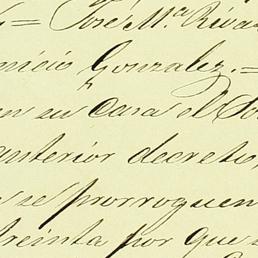 = José Mª Riva
nicio Gonzalez.=
en su Casa el
anterior decreto,
se prorroguen
treinta por que